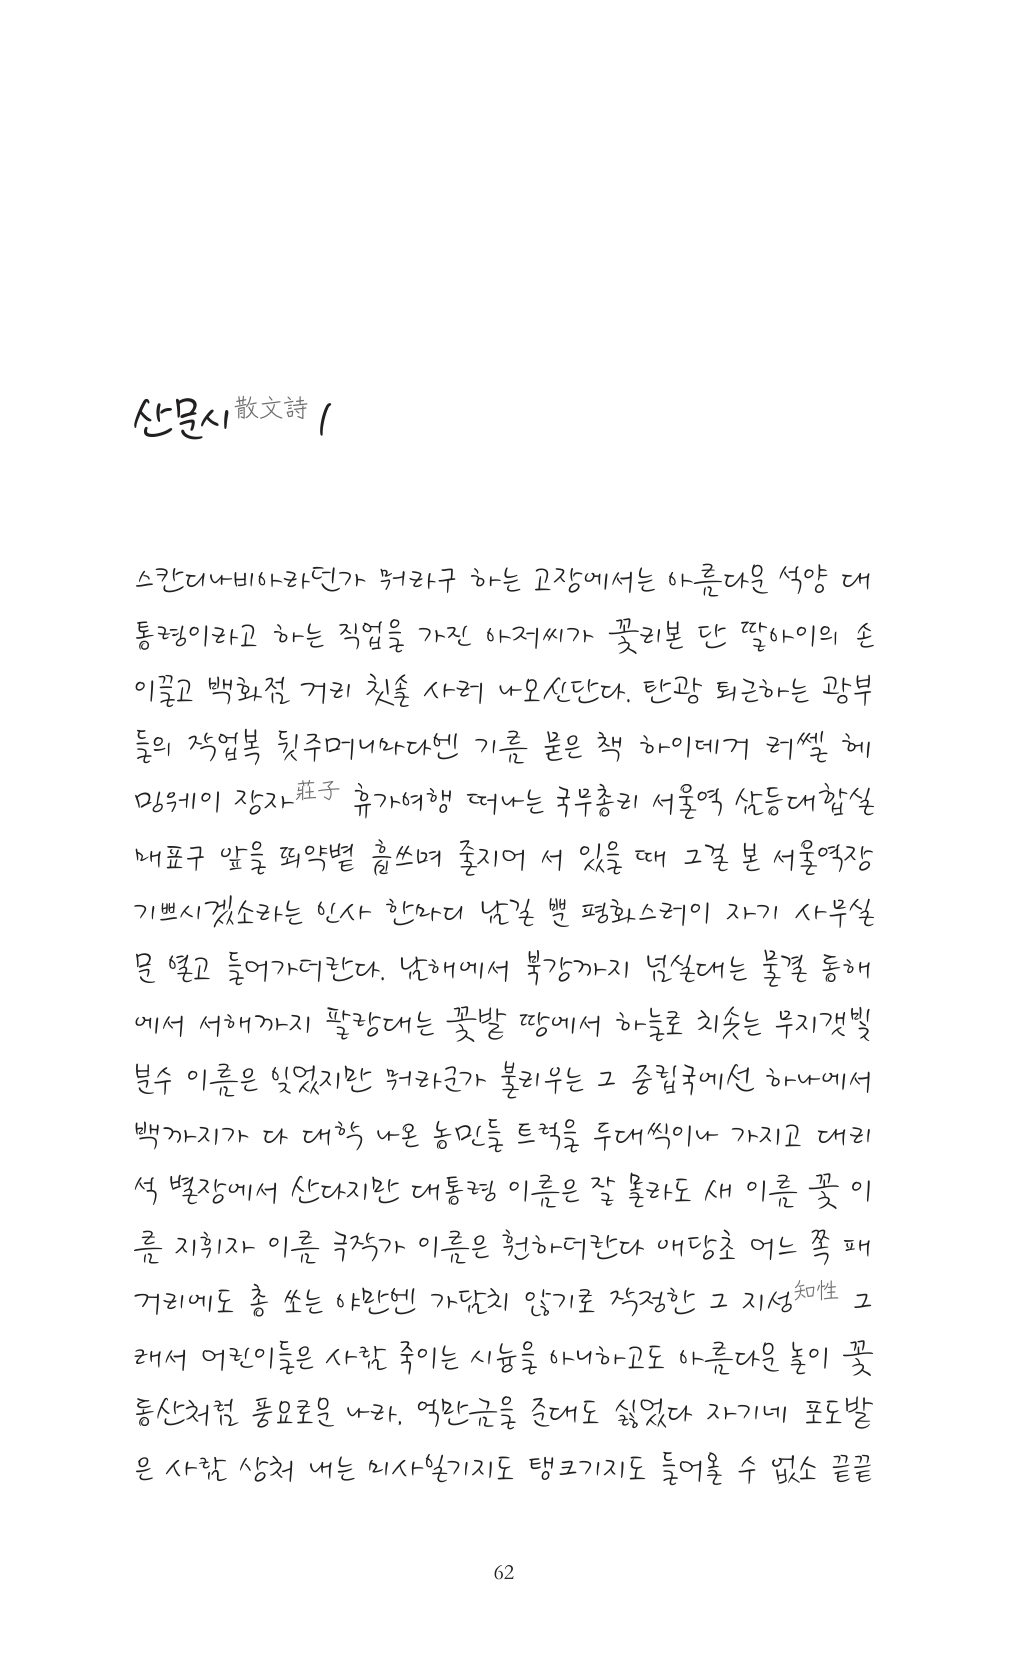 산문시散文詩 1
스칸디나비아라던가 뭐라구 하는 고장에서는 아름다운 석양 대
통령이라고 하는 직업을 가진 아저씨가 꽃리본 단 딸아이의 손
이끌고 백화점 거리 칫솔 사러 나오신단다. 탄광 퇴근하는 광부
들의 작업복 뒷주머니마다엔 기름 묻은 책 하이데거 러쎌 헤
밍웨이 장자莊子 휴가여행 떠나는 국무총리 서울역 삼등대합실
매표구 앞을 뙤약볕 흡쓰며 줄지어 서 있을 때 그걸 본 서울역장
기쁘시겠소라는 인사 한마디 남길 뿐 평화스러이 자기 사무실
문 열고 들어가더란다. 남해에서 북강까지 넘실대는 물결 동해
에서 서해까지 팔랑대는 꽃밭 땅에서 하늘로 치솟는 무지갯빛
분수 이름은 잊었지만 뭐라군가 불리우는 그 중립국에선 하나에서
백까지가 다 대학 나온 농민들 트럭을 두대씩이나 가지고 대리
석 별장에서 산다지만 대통령 이름은 잘 몰라도 새 이름 꽃 이
름 지휘자 이름 극작가 이름은 훤하더란다 애당초 어느 쪽 패
거리에도 총 쏘는 야만엔 가담치 않기로 작정한 그 지성知性 그
래서 어린이들은 사람 죽이는 시늉을 아니하고도 아름다운 놀이 꽃
동산처럼 풍요로운 나라. 억만금을 준대도 싫었다 자기네 포도밭
은 사람 상처 내는 미사일기지도 탱크기지도 들어올 수 없소 끝끝
62